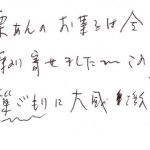 栗あんのお菓子は今
取り寄せました〜この
巣ごもりに大感激